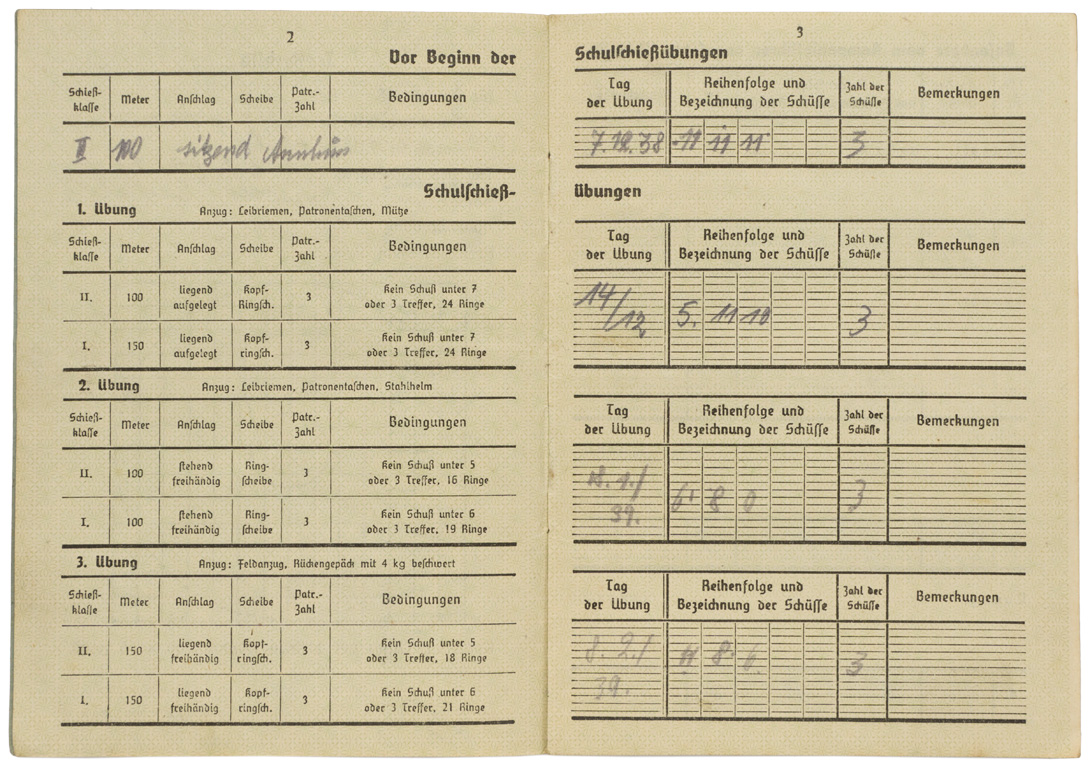 2
Vor Beginn der
Schieß-klasse Meter Anschlag Scheibe Patr.-Zahl Bedingungen
II 100 sitzend
Schulschieß-
1. Übung Anzug: Leibriemen, Patronentaschen, Mütze
Schieß-klasse Meter Anschlag Scheibe Patr.-Zahl Bedingungen
II. 100 liegend aufgelegt Kopf-Ringsch. 3 Kein Schuß unter 7 oder 3 Treffer, 24 Ringe
I. 150 liegend aufgelegt Kopf-ringsch. 3 Kein Schuß unter 7 oder 3 Treffer, 24 Ringe
2. Übung Anzug: Leibriemen, Patronentaschen, Stahlhelm
Schieß-klasse Meter Anschlag Scheibe Patr.-Zahl Bedingungen
II. 100 stehend freihändig Ring-scheibe 3 Kein Schuß unter 5 oder 3 Treffer, 16 Ringe
I. 100 stehend freihändig Ring-scheibe 3 Kein Schuß unter 6 oder 3 Treffer, 19 Ringe
3. Übung Anzug: Feldanzug, Rückengepäck mit 4 kg beschwert
Schieß-klasse Meter Anschlag Scheibe Patr.-Zahl Bedingungen
II. 150 liegend freihändig Kopf-ringsch. 3 Kein Schuß unter 5 oder 3 Treffer, 18 Ringe
I. 150 liegend freihändig Kopf-ringsch. 3 Kein Schuß unter 6 oder 3 Treffer, 21 Ringe
3
Schulschießübungen
Tag der Übung Reihenfolge und Bezeichnung der Schüsse Zahl der Schüsse Bemerkungen
7.12.38 11 11 11 3
übungen
Tag der Übung Reihenfolge und Bezeichnung der Schüsse Zahl der Schüsse Bemerkungen
14/12 5. 11 10 3
Tag der Übung Reihenfolge und Bezeichnung der Schüsse Zahl der Schüsse Bemerkungen
18.1./39. 6 8 0 3
Tag der Übung Reihenfolge und Bezeichnung der Schüsse Zahl der Schüsse Bemerkungen
8.2./39. 11 8 6 3